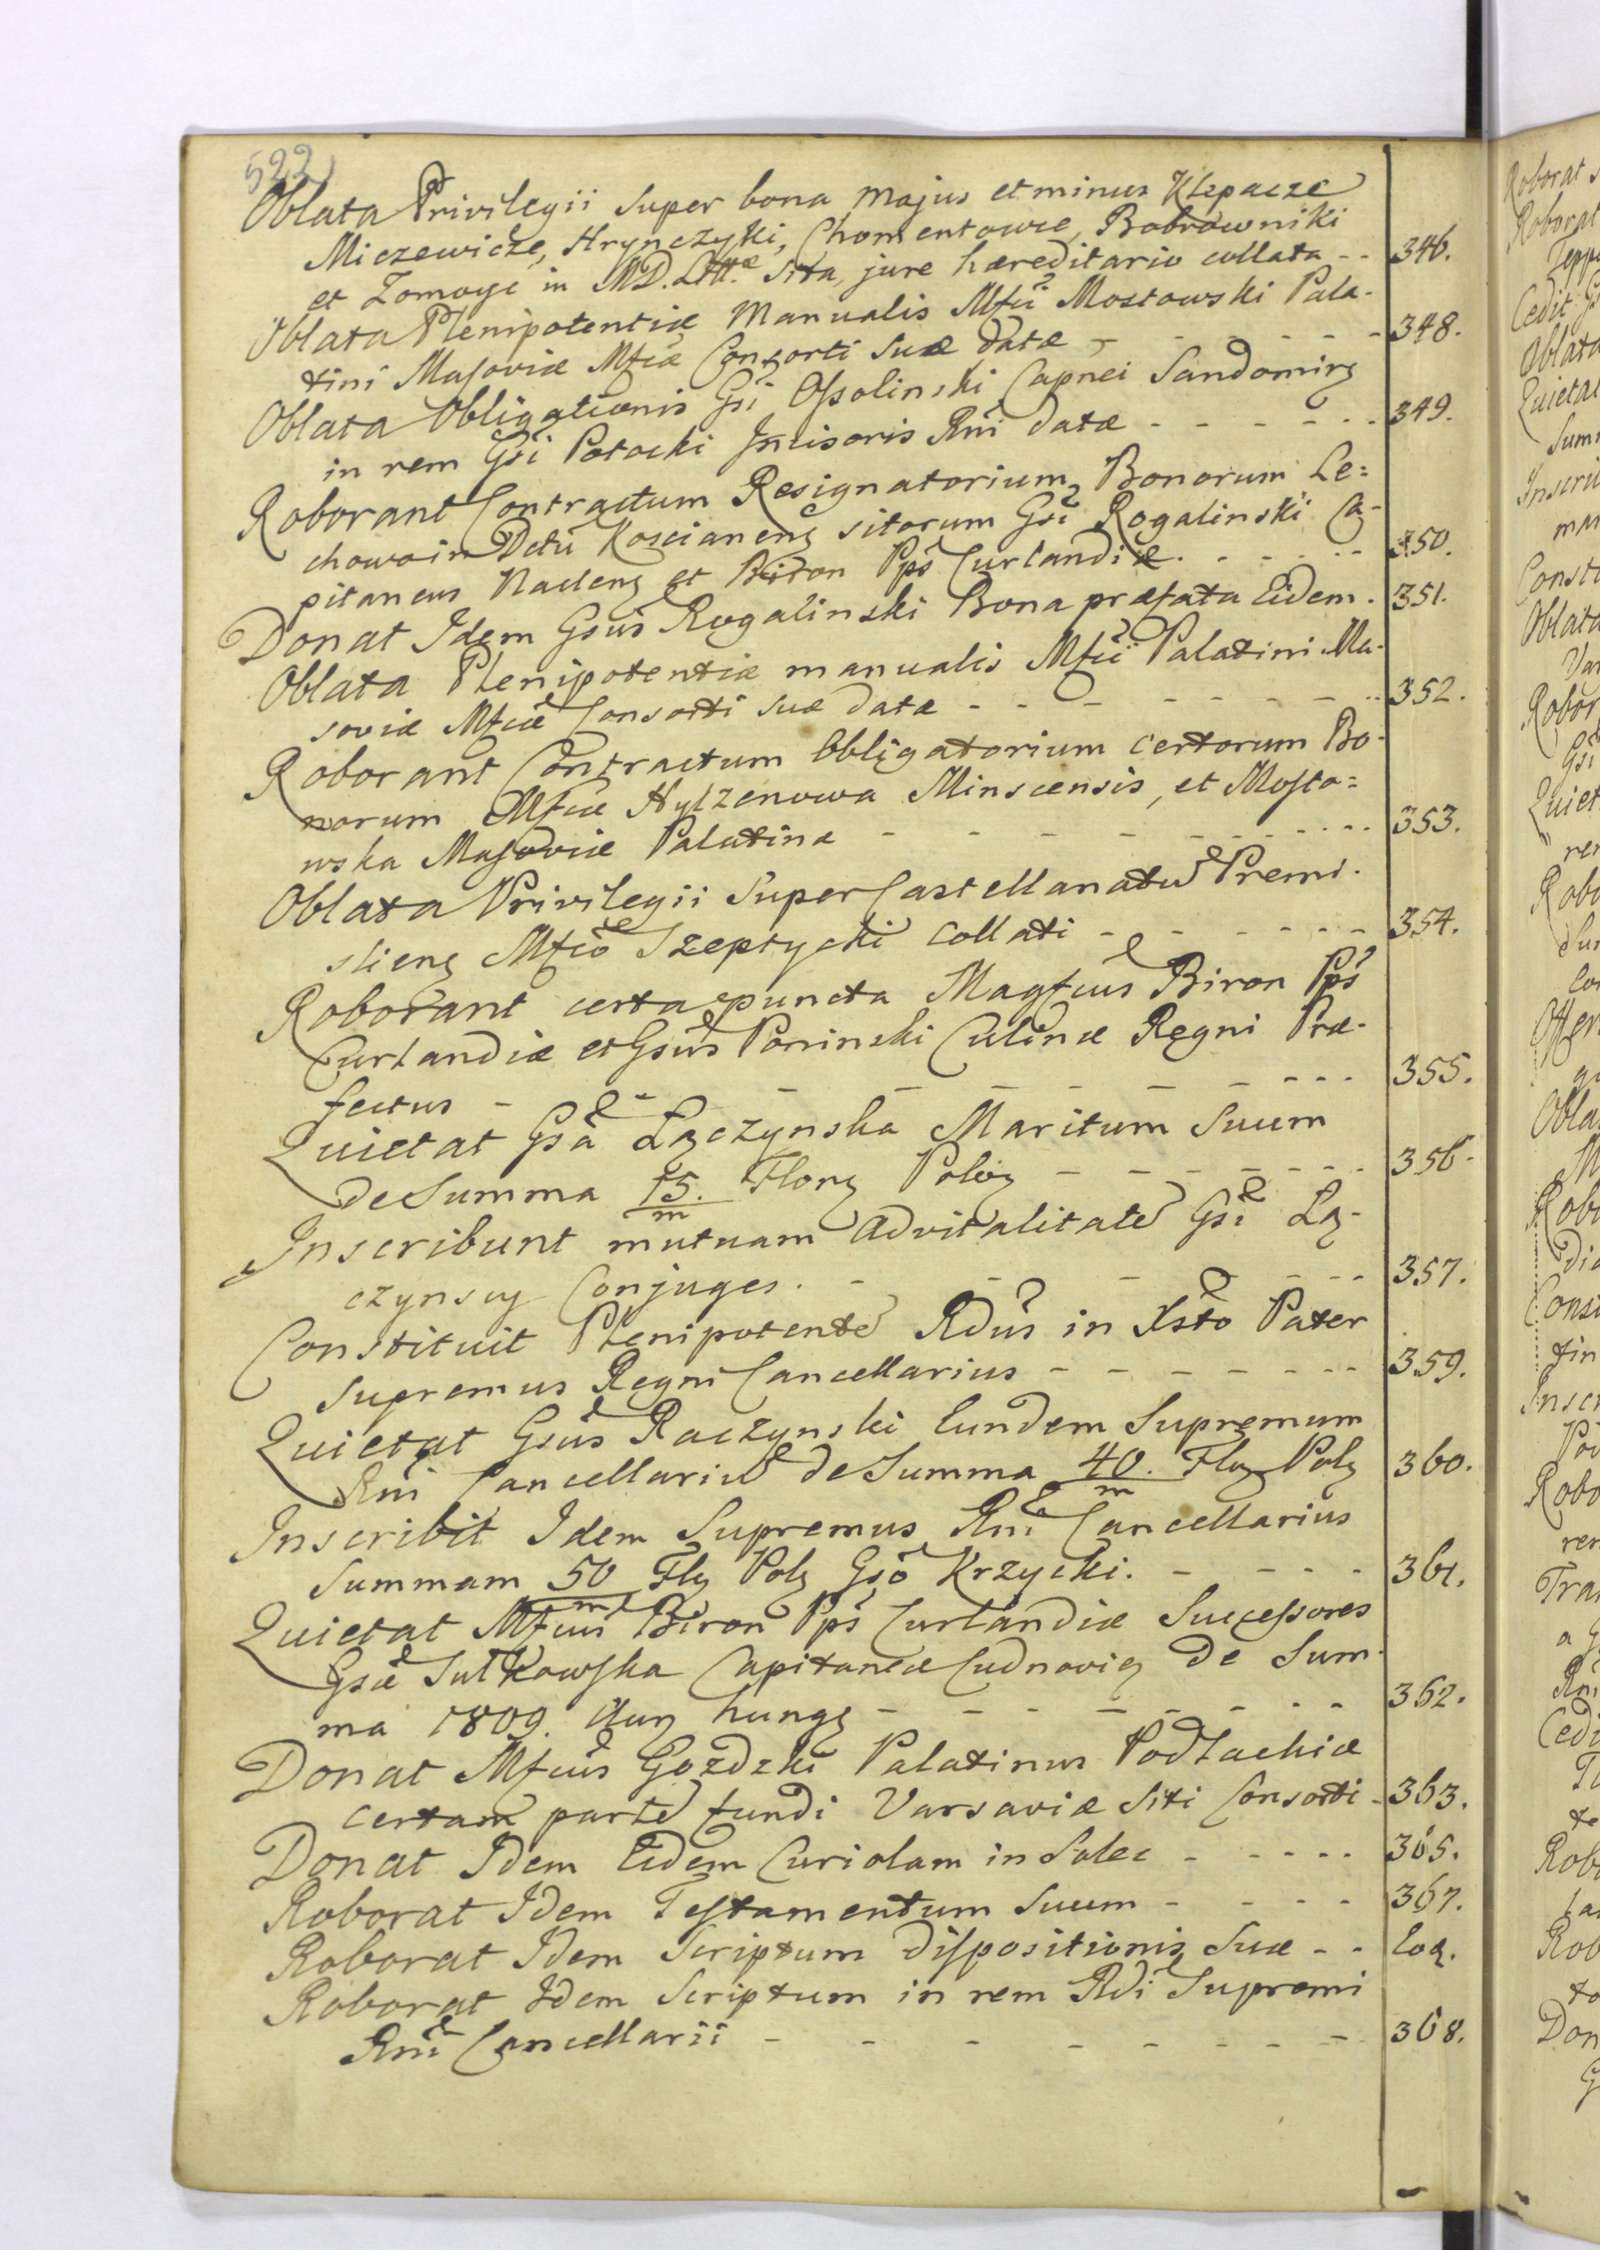 522
Oblata Privilegii super bona majus et minus Klepacze
Miczewicze, Hrynczyki, Chomentowce, Bobrowniki
et Zomoyci in M.D. Litt.æ sita, jure hæreditario collata - - 346.
Oblata Plenipotentiæ Manualis Mfci Mostowski Pala-
tini Masoviæ Mfcæ Consorti suæ datæ - - - - - - 348.
Oblata Obligationis Gsi Ossolinski Capnei Sandomirz
in rem Gsi Potocki Incisoris Rni datæ - - - - - - 349.
Roborant Contractum Resignatorium, Bonorum Le=
chowo in Dctu Koscianenz sitorum Gsi Rogalinski Ca-
pitaneus Naclenz et Biron Pps Curlandiæ - - - - - - 350.
Donat Idem Gsus Rogalinski Bona præfata Eidem. 351.
Oblata Plenipotentiæ manualis Mfci Palatini Ma-
soviæ Mfcæ Consorti suæ datæ - - - - - - - - 352.
Roborant Contractum Obligatorium certorum Bo-
norum Mfcæ Hylzenowa Minscensis, et Mosto=
wska Masoviæ Palatinæ - - - - - - - - - 353.
Oblata Privilegii super Castellanatu Premi-
slienz Mfco Szeptycki collati - - - - - - - 354.
Roborant certa puncta Magfcus Biron Pps
Curlandiæ et Gsus Poninski Culinæ Regni Præ-
fectus - - - - - - - - - - 355.
Quietat Gsa Lączynska Maritum suum
de Summa 15. Florz Polez - - - - - - - 356.
m
Inscribunt mutuam Advitalitate Gsi Lą-
czynscy Conjuges. - - - - - - - 357.
Constituit Plenipotente Rdus in Xsto Pater
supremus Regni Cancellarius - - - - - - - 359.
Quietat Gsus Raczynski Eundem Supremum
Rni Cancellariu de Summa 40. Flz Polz 360.
m
Inscribit Idem Supremus Rni Cancellarius
summam 50 Flz Polz Gso Krzycki. - - - - 361.
m
Quietat Mfcus Biron Pps Curlandiæ Successores
Gsæ Sulkowska Capitaneæ Cudnoviez de Sum-
ma 1809. Aur hungz - - - - - - - - 362.
Donat Mfcus Gozdzki Palatinus Podlachiæ
certam parte fundi Varsaviæ siti Consorti - 363.
Donat Idem Eidem Curiolam in Solec - - - - - 365.
Roborat Idem Testamentum suum - - - - 367.
Roborat Idem Scriptum dispositionis suæ - - Eoд.
Roborat Idem Scriptum in rem Rdi Supremi
Rni Cancellarii - - - - - - - - 368.